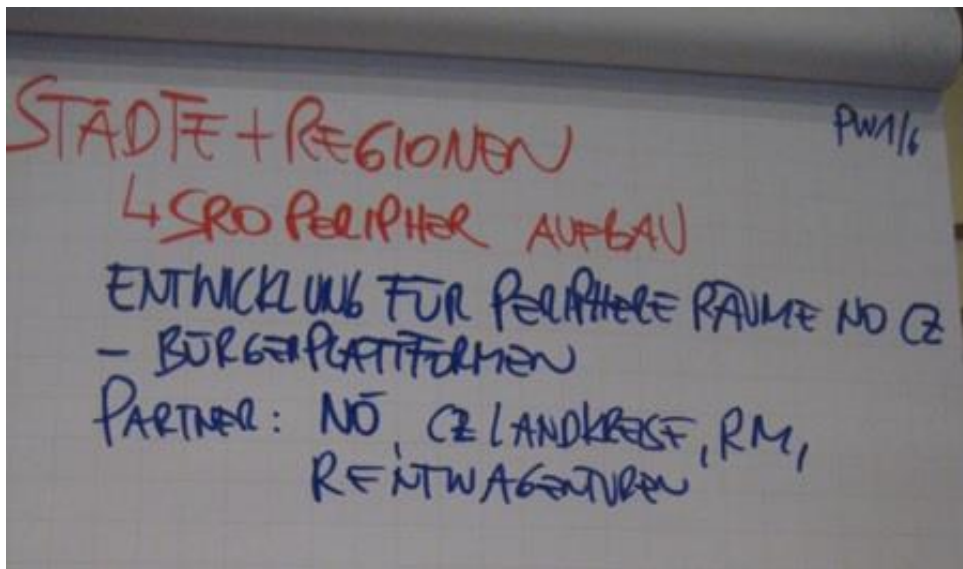 STÄDTE + REGIONEN
PW1/6
↳ SRO PERIPHER AUFBAU
ENTWICKLUNG FÜR PERIPHERE RÄUME NÖ CZ
– BÜRGERPLATTFORMEN
PARTNER: NÖ, CZ LANDKREISE, RM,
RENTWAGENTUREN